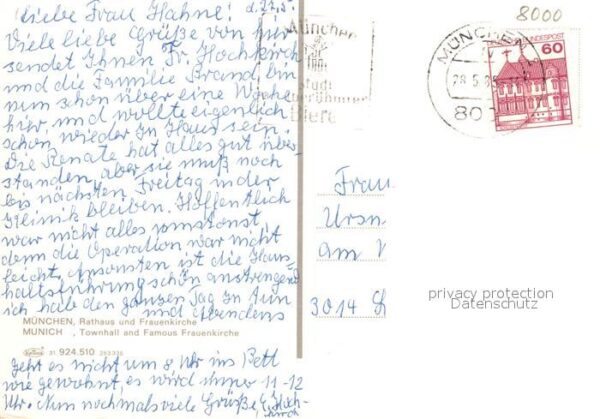 Liebe Frau Hahne! d. 27.5.
Viele liebe Grüße von hier
sendet Ihnen Fr. Hochkirch
und die Familie Brand, bin
nun schon über eine Woche
hier, und wollte eigentlich
schon wieder zu Haus sein.
Die Renate hat alles gut über-
standen, aber sie muß noch
bis nächsten Freitag in der
Klinik bleiben. Hoffentlich
war nicht alles umsonst,
denn die Operation war nicht
leicht. Ansonsten ist die Haus-
haltsführung schön anstrengend
ich hab den ganzen Tag zu tun
und abends
MÜNCHEN, Rathaus und Frauenkirche
MUNICH , Townhall and Famous Frauenkirche
31 924.510
geht es nicht um 8 Uhr ins Bett
wie gewohnt, es wird immer 11-12
Uhr. Nun nochmals viele Grüße E. Hoch-
kirch
München
Stadt
berühmter
Biere
8000
MÜNCHEN
28.5.85
80
BUNDESPOST
60
Frau
Ursu
am
3014
privacy protection
Datenschutz